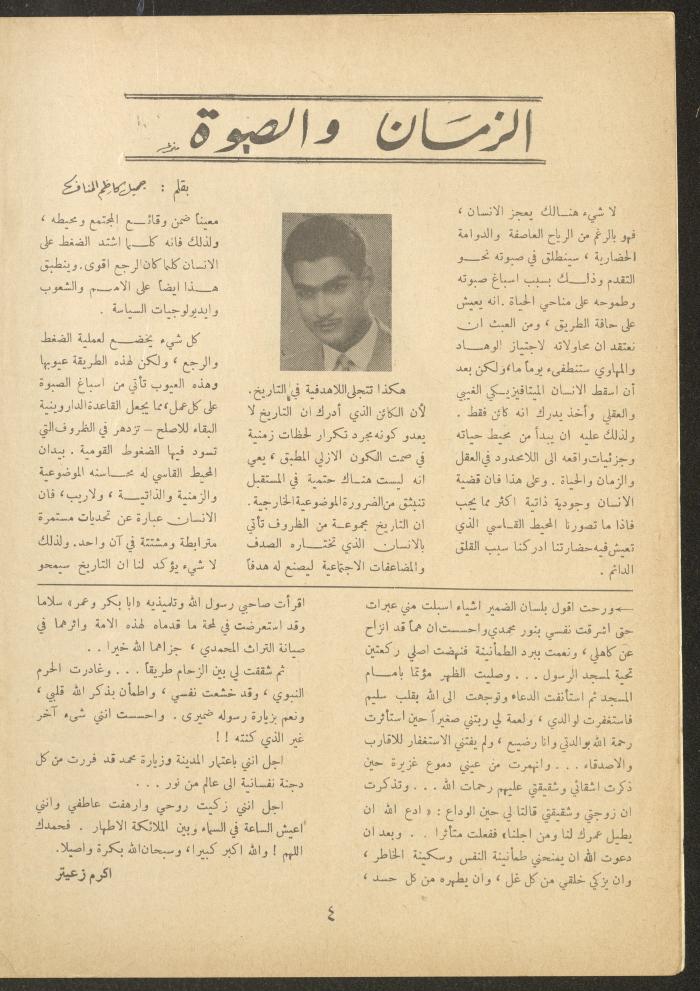 الزمان والصبوة
بقلم : جميل كاظم المناف
لا شيء هنالك يعجز الانسان ،
فهو بالرغم من الرياح العاصفة والدوامة
الحضارية ، سينطلق في صبوته نحو
التقدم وذلك بسبب اسباغ صبوته
وطموحه على مناحي الحياة . انه يعيش
على حافة الطريق ، ومن العبث ان
نعتقد ان محاولاته لاجتياز الوهاد
والمهاوي ستنطفىء يوماً ما ، ولكن بعد
أن اسقط الانسان الميتافيزيكي الغيبي
والعقلي وأخذ يدرك انه كائن فقط .
ولذلك عليه ان يبدأ من محيط حياته
وجزئيات واقعه الى اللامحدود في العقل
والزمان والحياة . وعلى هذا فان قضية
الانسان وجودية ذاتية اكثر مما يجب
فاذا ما تصورنا المحيط القاسي الذي
تعيش فيه حضارتنا ادركنا سبب القلق
الدائم .
هكذا تتجلى اللاهدفية في التاريخ .
لأن الكائن الذي أدرك ان التاريخ لا
يعدو كونه مجرد تكرار لحظات زمنية
في صمت الكون الازلي المطبق ، يعي
انه ليست هناك حتمية في المستقبل
تنبثق من الضرورة الموضوعية الخارجية .
ان التاريخ مجموعة من الظروف تأتي
بالانسان الذي تختاره الصدف
والمضاعفات الاجتماعية ليصنع له هدفاً
معيناً ضمن وقائع المجتمع ومحيطه ،
ولذلك فانه كلما اشتد الضغط على
الانسان كلما كان الرجع اقوى . وينطبق
هذا ايضاً على الامم والشعوب
وايديولوجيات السياسة .
كل شيء يخضع لعملية الضغط
والرجع ، ولكن لهذه الطريقة عيوبها
وهذه العيوب تأتي من اسباغ الصبوة
على كل عمل ، مما يجعل القاعدة الداروينية
البقاء للاصلح – تزدهر في الظروف التي
تسود فيها الضغوط القومية . بيدان
المحيط القاسي له محاسنه الموضوعية
والزمنية والذاتية ، ولاريب ، فان
الانسان عبارة عن تحديات مستمرة
مترابطة ومشتتة في آن واحد . ولذلك
لا شيء يؤكد لنا ان التاريخ سيمحو
← ورحت اقول بلسان الضمير اشياء اسبلت مني عبرات
حتى اشرقت نفسي بنور محمدي واحسست ان هماً قد انزاح
عن كاهلي ، ونعمت ببرد الطمأنينة فنهضت اصلي ركعتين
تحية لمسجد الرسول ... وصليت الظهر مؤتماً بامام
المسجد ثم استأنفت الدعاء وتوجهت الى الله بقلب سليم
فاستغفرت لوالدي ، ولعمة لي ربتني صغيراً حين استأثرت
رحمة الله بوالدتي وانا رضيع ، ولم يفتني الاستغفار للاقارب
والاصدقاء ... وانهمرت من عيني دموع غزيرة حين
ذكرت اشقائي وشقيقتي عليهم رحمات الله ... وتذكرت
ان زوجتي وشقيقتي قالتا لي حين الوداع : « ادع الله ان
يطيل عمرك لنا ومن اجلنا» ففعلت متأثرا .. وبعد ان
دعوت الله ان يمنحني طمأنينة النفس وسكينة الخاطر ،
وان يزكي خلقي من كل غل ، وان يطهره من كل حسد ،
اقرأت صاحبي رسول الله وتلميذيه «ابا بكر وعمر» سلاما
وقد استعرضت في لمحة ما قدماه لهذه الامة واثرهما في
صيانة التراث المحمدي ، جزاهما الله خيرا ..
ثم شققت لي بين الزحام طريقاً ... وغادرت الحرم
النبوي ، وقد خشعت نفسي ، واطمأن بذكر الله قلبي ،
ونعم بزيارة رسوله ضميري . واحسست انني شىء آخر
غير الذي كنته ! !
اجل انني باعتمار المدينة وزيارة محمد قد فررت من كل
دجنة نفسانية الى عالم من نور ...
اجل انني زكيت روحي وارهفت عاطفي وانني
اعيش الساعة في السماء وبين الملائكة الاطهار . فحمدك
اللهم ! والله اكبر كبيرا ، وسبحان الله بكرة واصيلا .
اكرم زعيتر
٤